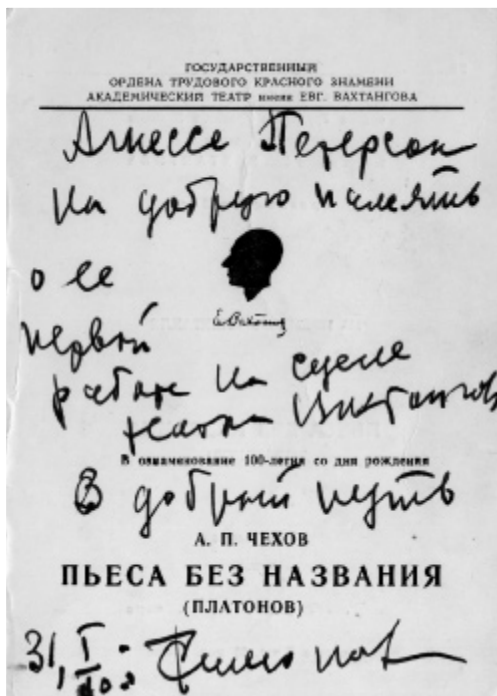 ГОСУДАРСТВЕННЫЙ
ОРДЕНА ТРУДОВОГО КРАСНОГО ЗНАМЕНИ
АКАДЕМИЧЕСКИЙ ТЕАТР имени ЕВГ. ВАХТАНГОВА
Агнессе Петерсон
на добрую память
о ее
Е. Вахтанг
первой
работе на сцене
театра Вахтангова
В ознаменование 100-летия со дня рождения
В добрый путь
А. П. ЧЕХОВ
ПЬЕСА БЕЗ НАЗВАНИЯ
(ПЛАТОНОВ)
31, I